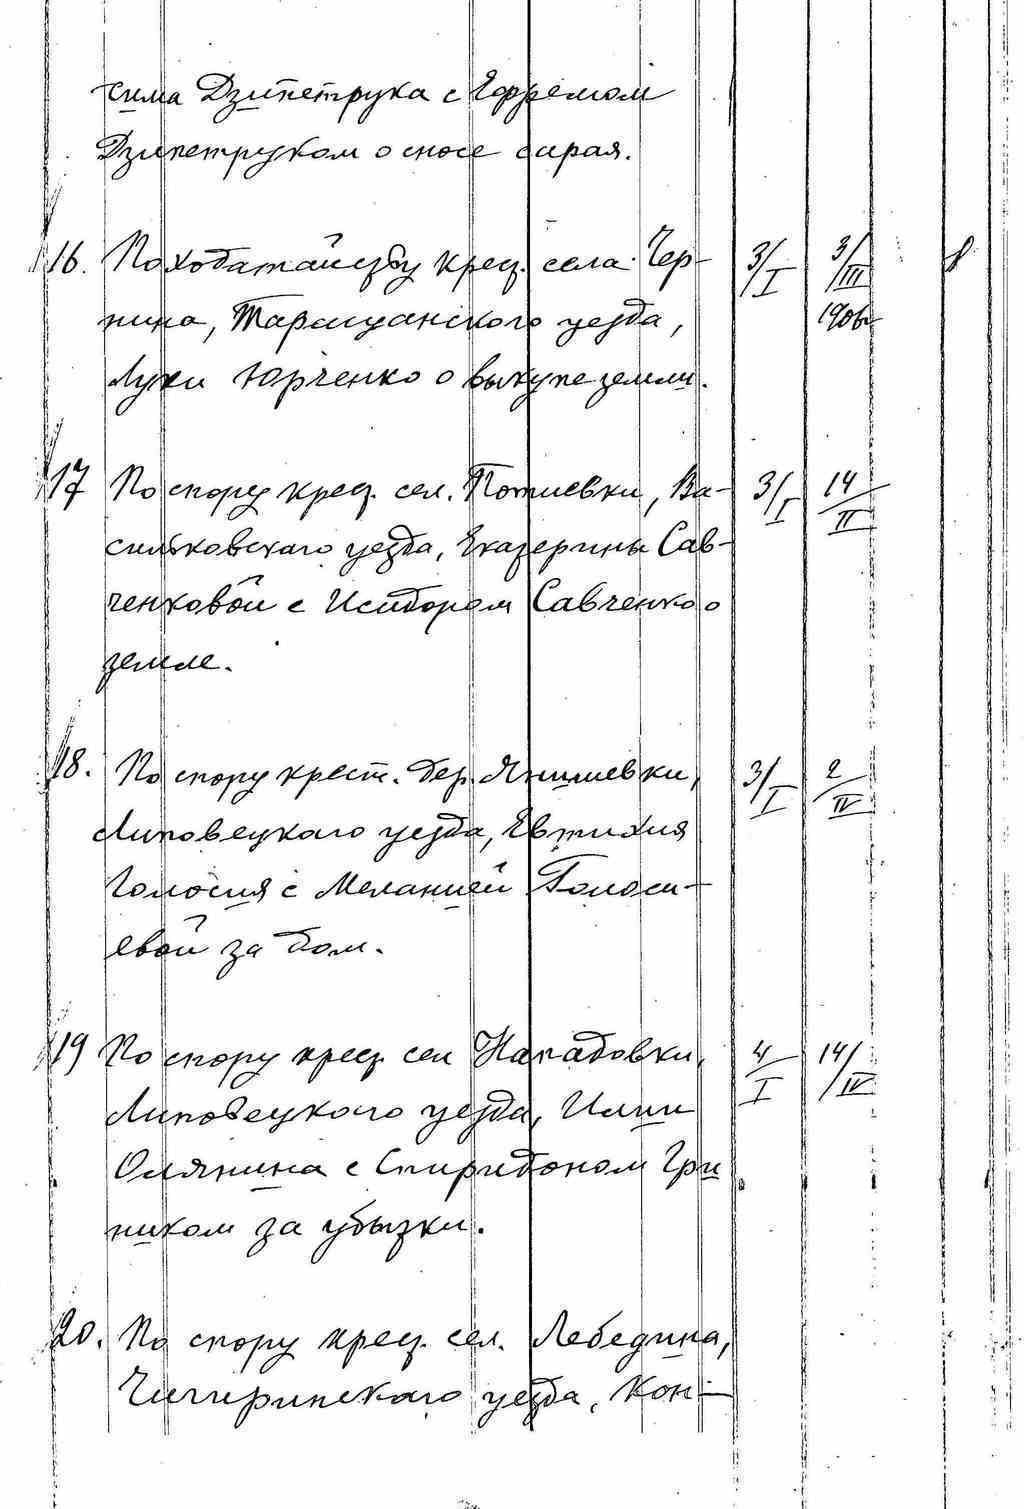 сима Дзипетрука с Ефремом
Дзипетруком о сносе сарая.
16. По ходатайству крест. села Чер- 3/I 3/III 8
нина, Таращанского уезда, 1906
Луки Юрченко о выкупе земли.
17 По спору крест. сел. Потиевки, Ва- 3/I 14/II
сильковскаго уезда, Екатерины Сав-
ченковой с Исидором Савченко о
земле.
18. По спору крест. дер. Янишевки, 3/I 2/IV
Липовецкаго уезда, Евтихия
Голосия с Меланией Голоси-
евой за дом.
19 По спору крест. сел Нападовки, 4/I 14/IV
Липовецкого уезда, Илии
Олянина с Спиридоном Гри
ником за убытки.
20. По спору крест. сел. Лебедина,
Чигиринскаго уезда, Кон-